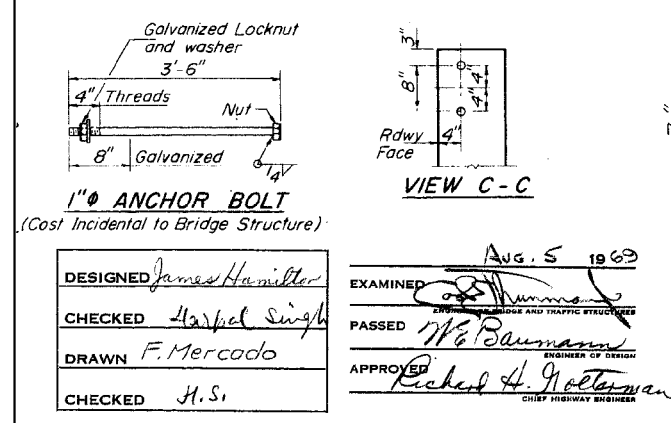 Galvanized Locknut
and washer
3'-6"
4" Threads
Nut
8" Galvanized
1/4
1"Φ ANCHOR BOLT
(Cost Incidental to Bridge Structure)
3"
8"
4"
4"
Rdwy
Face
4"
VIEW C-C
7"
DESIGNED James Hamilton
CHECKED Harpal Singh
DRAWN F. Mercado
CHECKED H.S.
AUG. 5 1969
EXAMINED
ENGINEER OF BRIDGE AND TRAFFIC STRUCTURES
PASSED W E Baumann
ENGINEER OF DESIGN
APPROVED Richard H. Golterman
CHIEF HIGHWAY ENGINEER